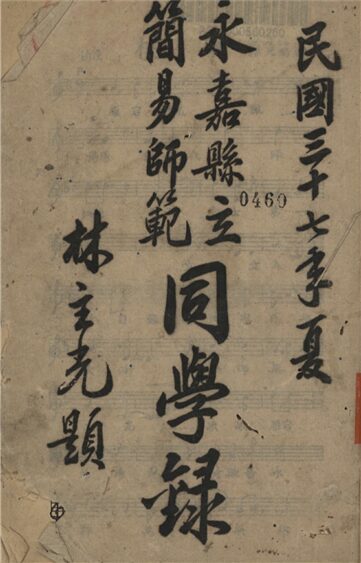 民國三十七季夏
永嘉縣立
簡易師範
同學録
林主光題
0460